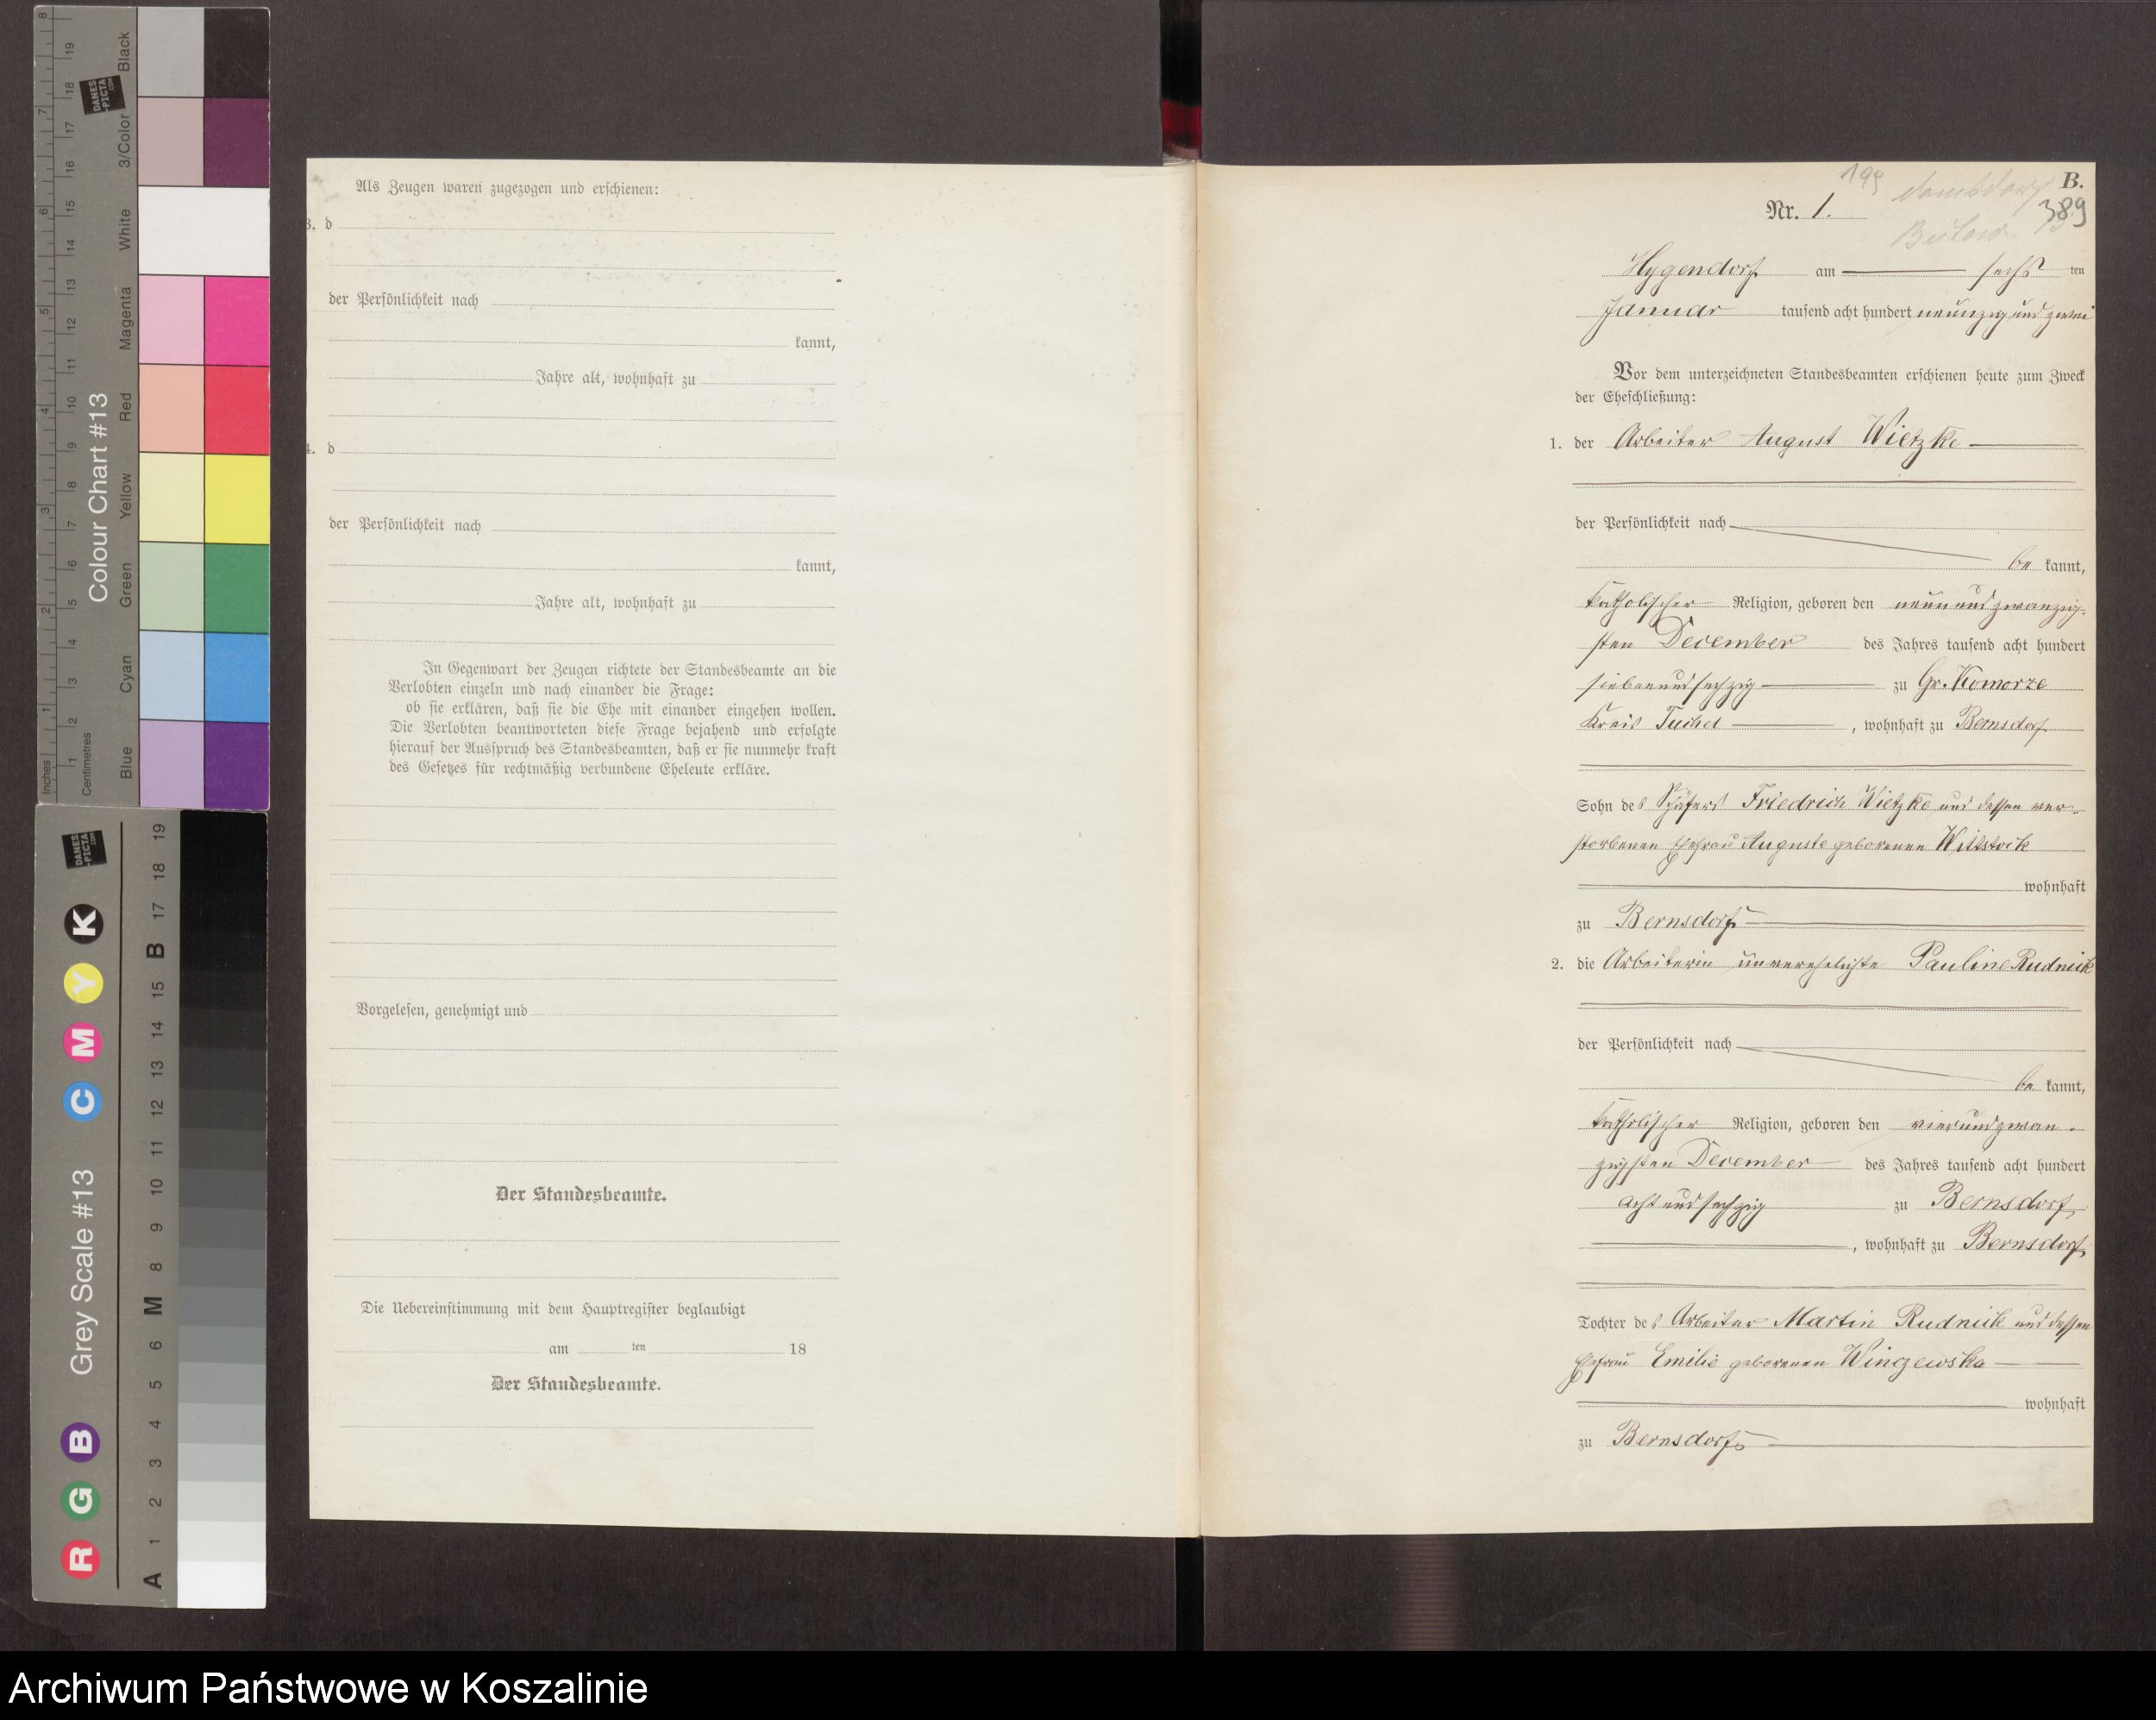 Als Zeugen waren zugezogen und erschienen:
3. d
der Persönlichkeit nach
kannt,
Jahre alt, wohnhaft zu
4. d
der Persönlichkeit nach
kannt,
Jahre alt, wohnhaft zu
In Gegenwart der Zeugen richtete der Standesbeamte an die
Verlobten einzeln und nach einander die Frage:
ob sie erklären, daß sie die Ehe mit einander eingehen wollen.
Die Verlobten beantworteten diese Frage bejahend und erfolgte
hierauf der Ausspruch des Standesbeamten, daß er sie nunmehr kraft
des Gesetzes für rechtmäßig verbundene Eheleute erkläre.
Vorgelesen, genehmigt und
Der Standesbeamte.
Die Uebereinstimmung mit dem Hauptregister beglaubigt
am ten 18
Der Standesbeamte.
199 B.
Nr. 1. 389
Hygendorf am sechs ten
Januar tausend acht hundert neunzig und zwei
Vor dem unterzeichneten Standesbeamten erschienen heute zum Zweck
der Eheschließung:
1. der Arbeiter August Wietzke
der Persönlichkeit nach
be kannt,
katholischer Religion, geboren den neunundzwanzig-
sten December des Jahres tausend acht hundert
siebenundsechzig zu Gr. Komorze
Kreis Tuchel, wohnhaft zu Bernsdorf
Sohn des Schäfers Friedrich Wietzke und dessen ver-
storbenen Ehefrau Auguste geborenen Wittstock
wohnhaft
zu Bernsdorf
2. die Arbeiterin unverehelichte Pauline Rudnick
der Persönlichkeit nach
be kannt,
katholischer Religion, geboren den vierundzwan-
zigsten December des Jahres tausend acht hundert
acht und sechzig zu Bernsdorf
, wohnhaft zu Bernsdorf
Tochter des Arbeiter Martin Rudnick und dessen
Ehefrau Emilie geborenen Winczewska
wohnhaft
zu Bernsdorf
Colour Chart #13
Blue Cyan Green Yellow Red Magenta White 3/Color Black
Inches
Centimetres
DANES-PICTA.COM
Grey Scale #13
R G B C M Y K
A 1 2 3 4 5 6 M 8 9 10 11 12 13 14 15 B 17 18 19
Archiwum Państwowe w Koszalinie